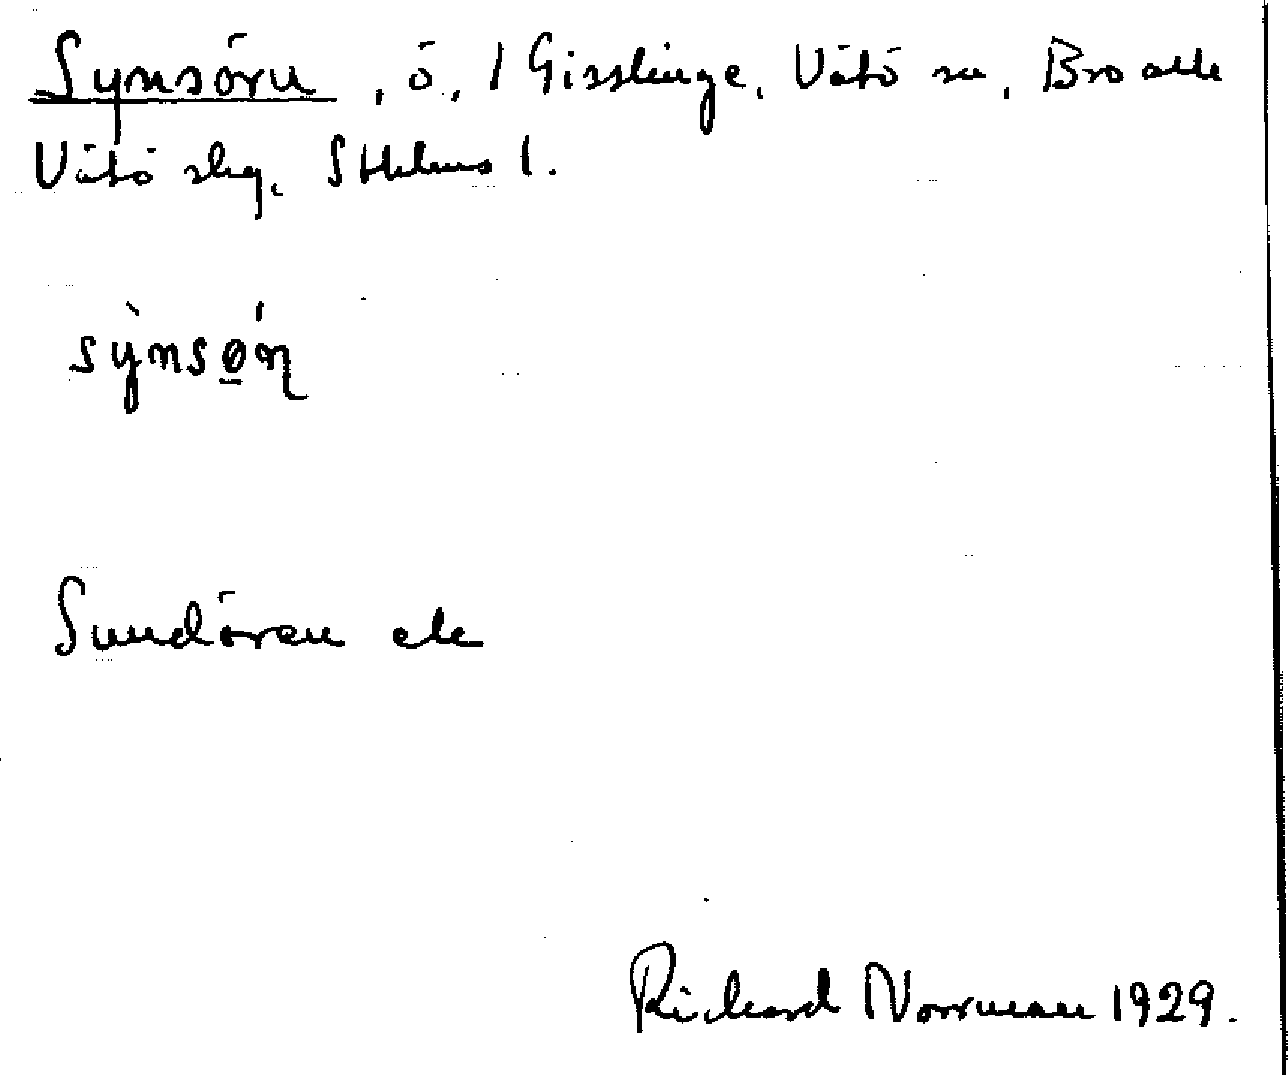 Synsörn, ö, 1 Gisslinge, Vätö sn, Bro och
Vätö slg, Sthlms l.
sy̍nsǿ̱n̨
Sundören ek
Richard Norrman 1929.